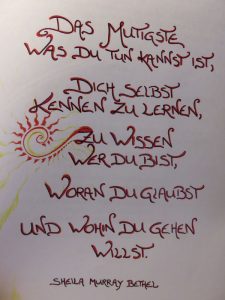 Das Mutigste
Was Du tun kannst ist,
Dich selbst
Kennen zu lernen,
zu wissen
wer Du bist,
woran Du glaubst
und wohin Du gehen
willst.
Sheila Murray Bethel